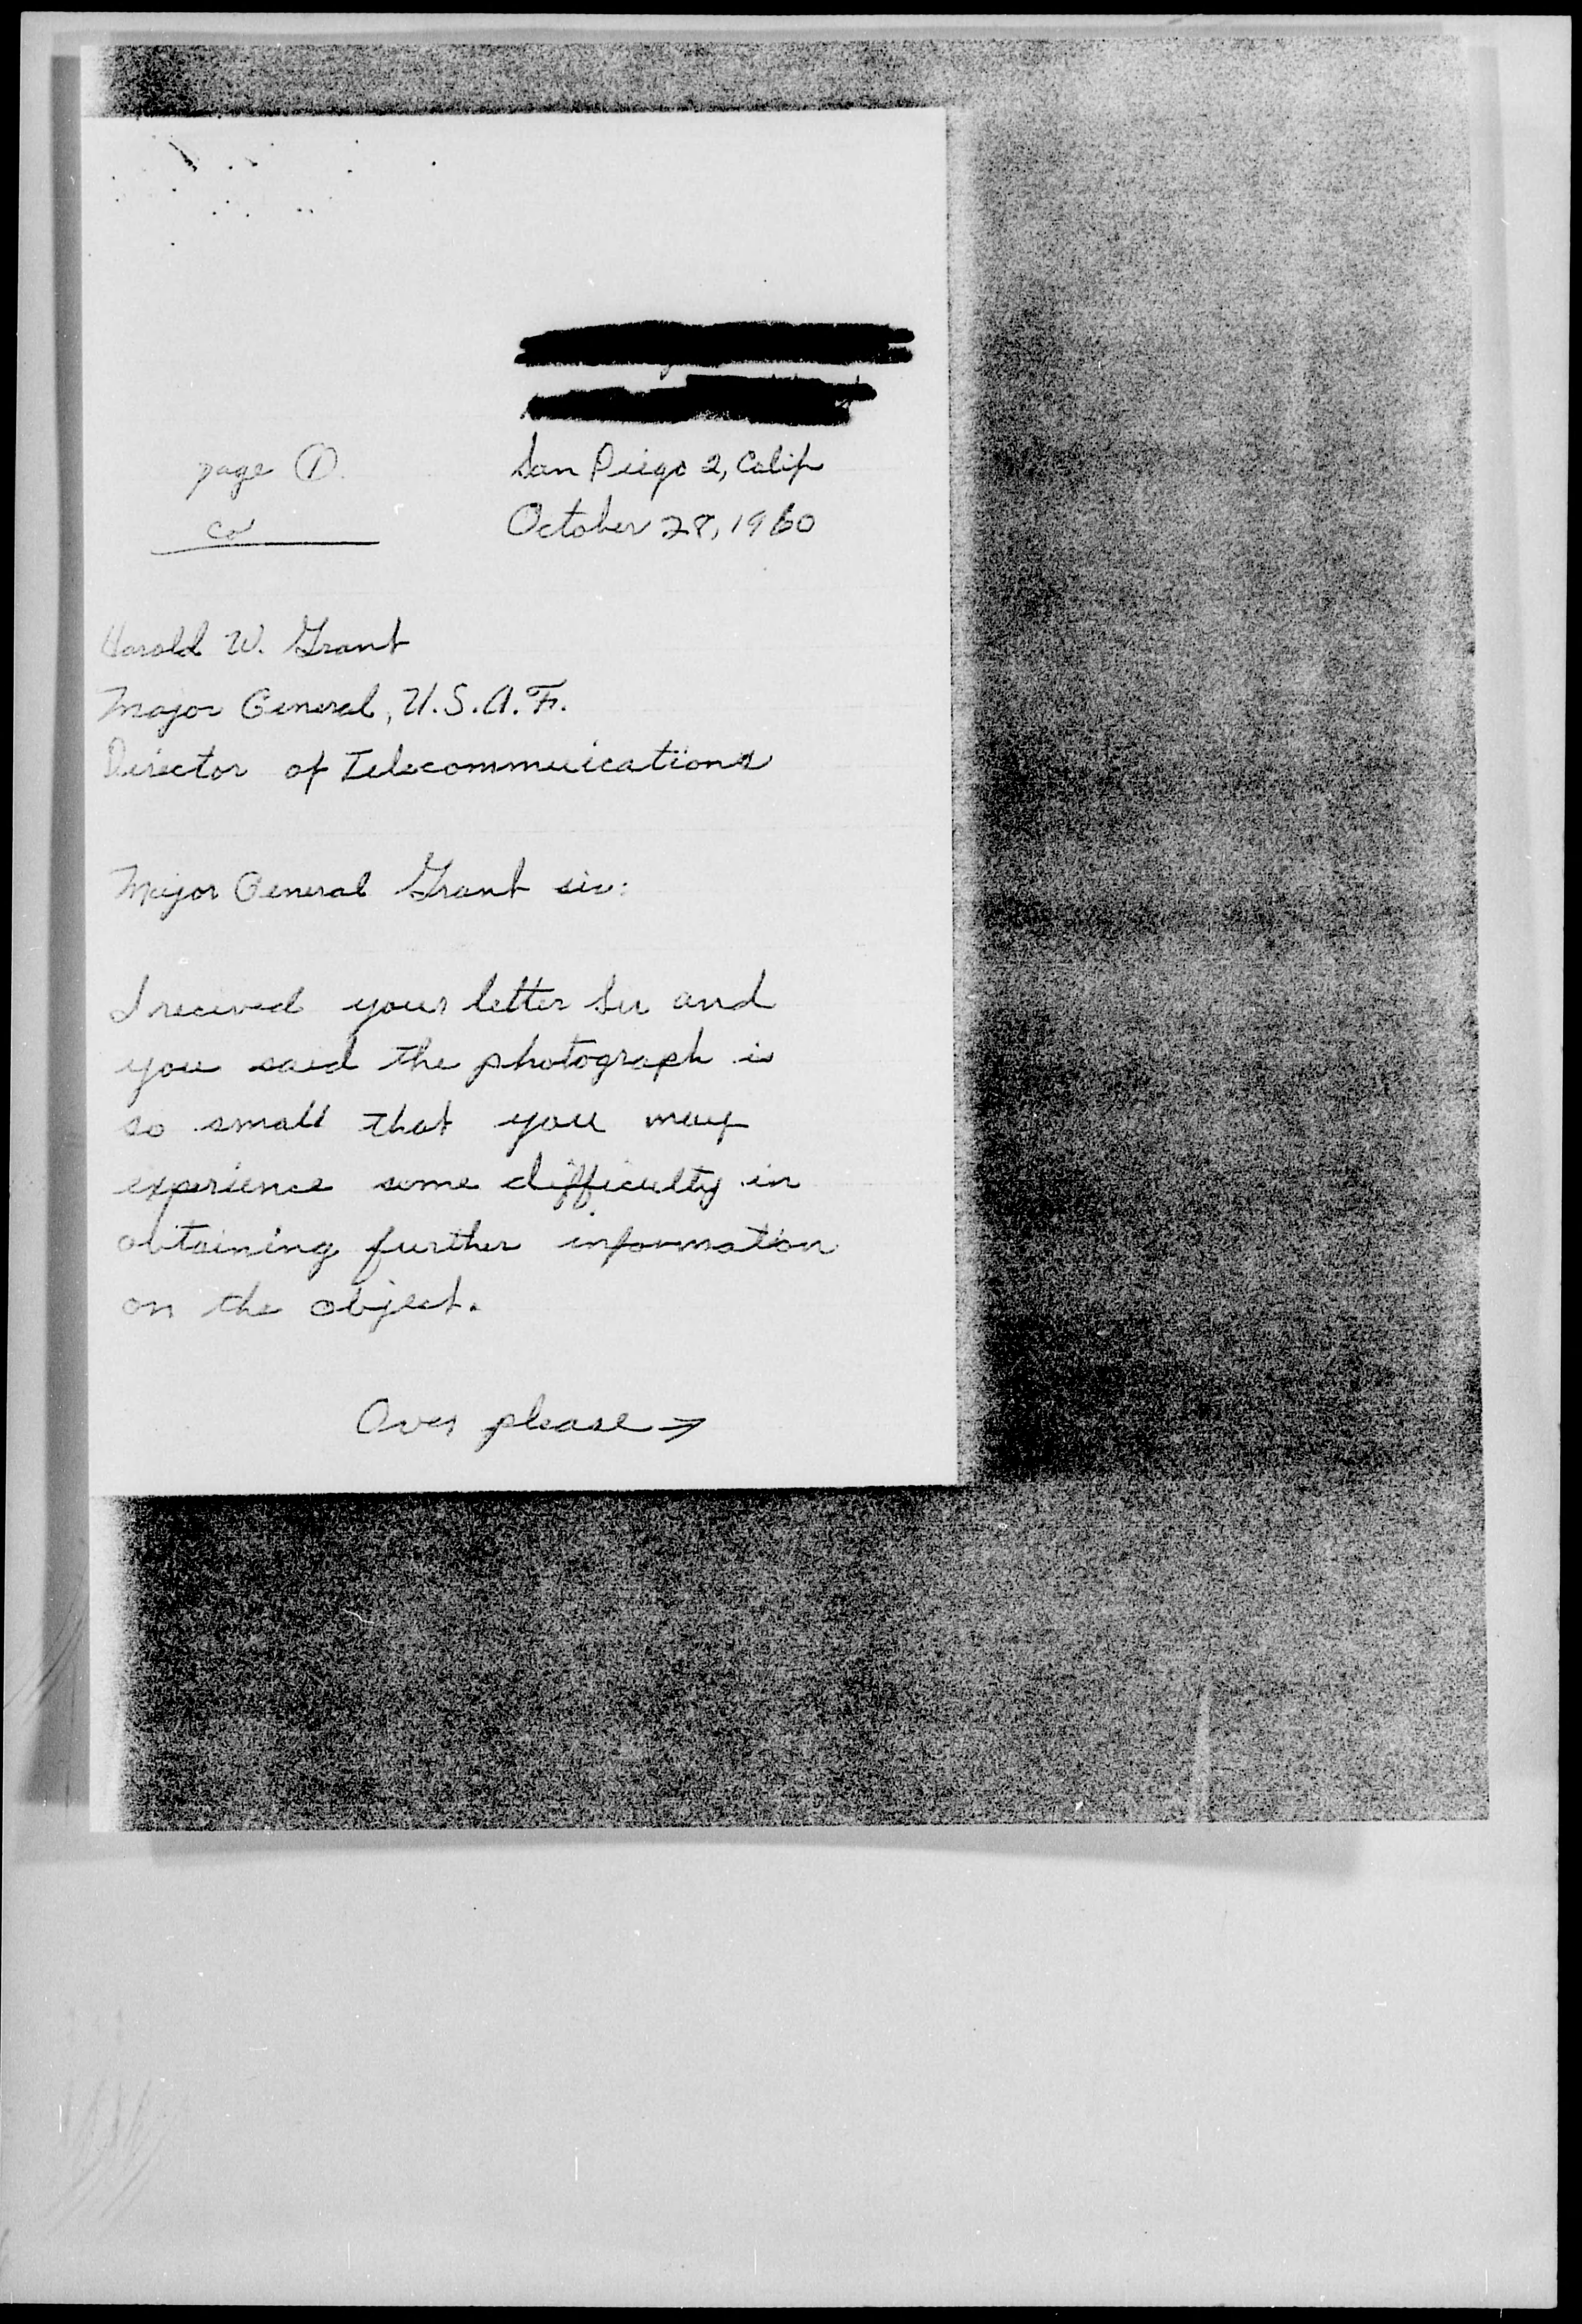 San Diego 2, Calif
page 1
October 28, 1960
Harold W. Grant
Major General, U.S.A.F.
Director of Telecommunications
Major General Grant sir:
I recived your letter Sir and
you said the photograph is
so small that you may
experience some difficulty in
obtaining further information
on the object.
Over please →